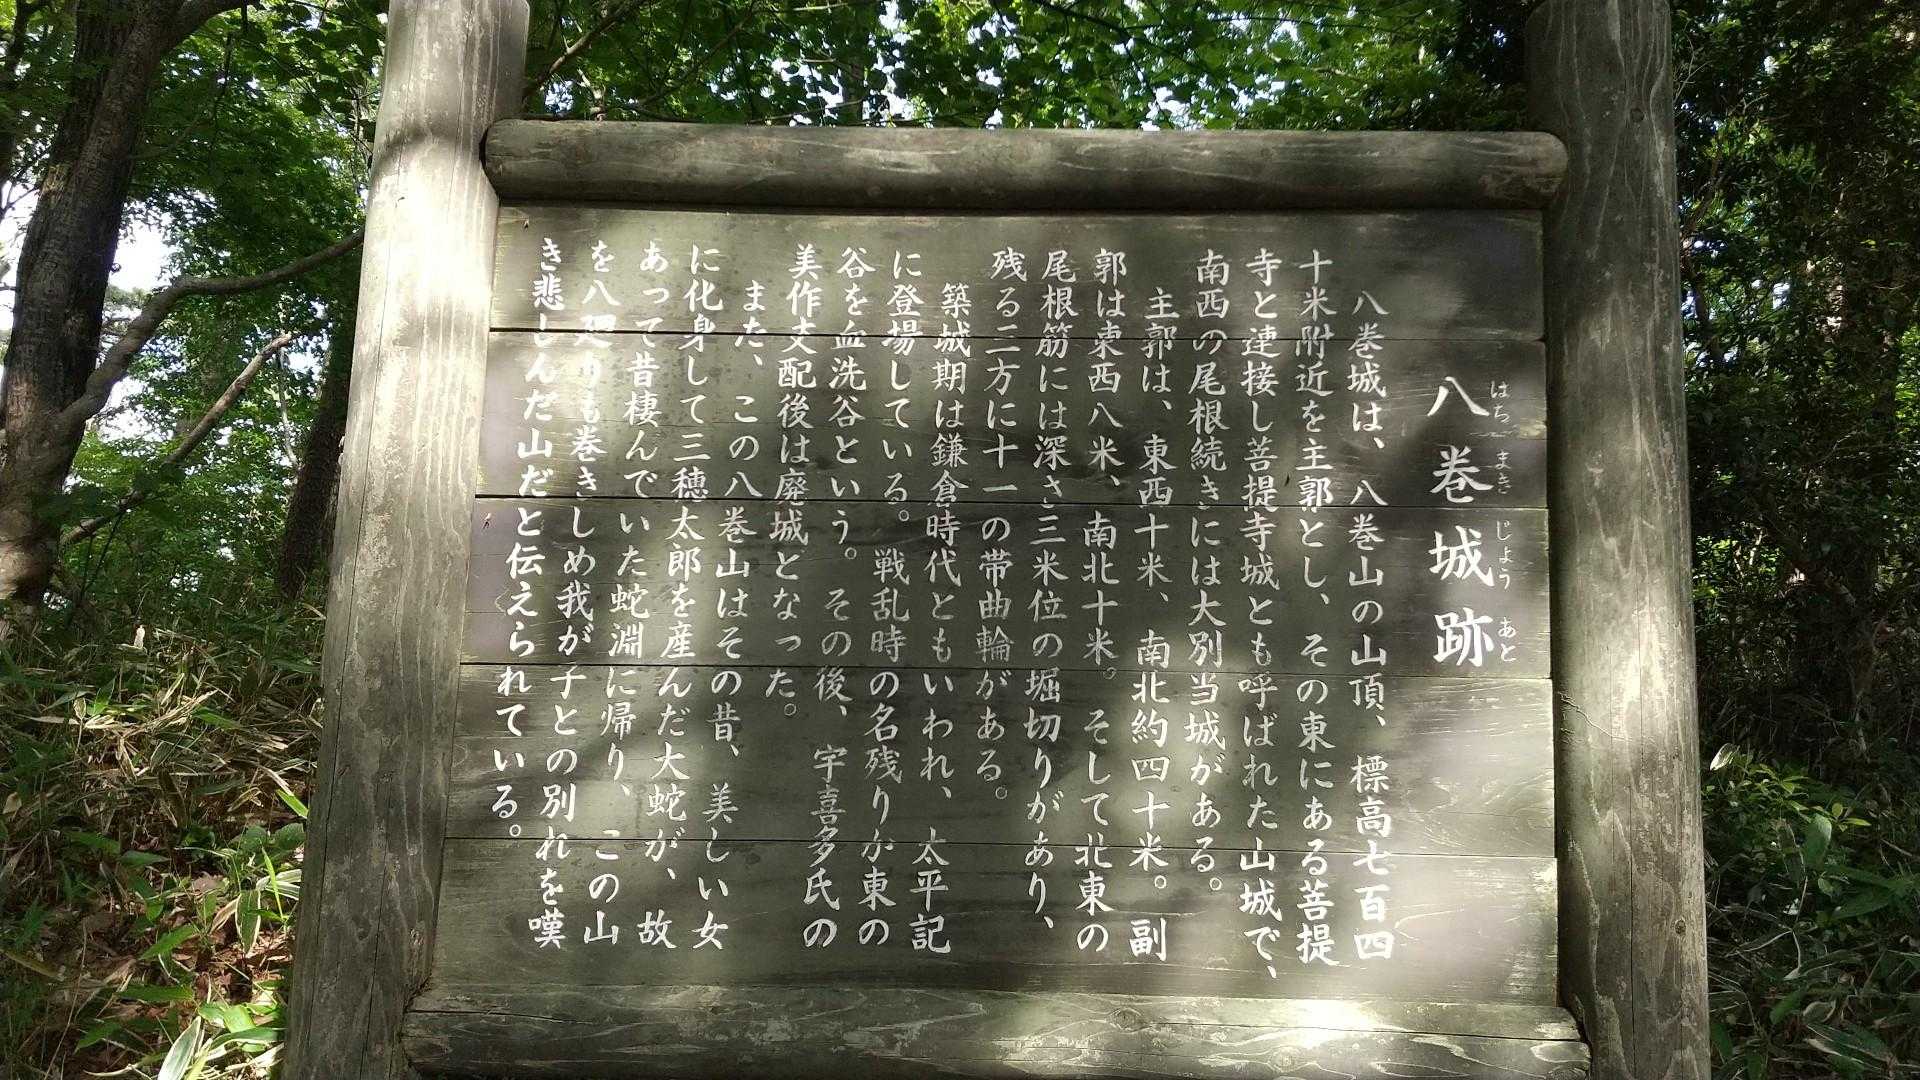 八巻城跡
はちまきじょうあと
八巻城は、八巻山の山頂、標高七百四
十米附近を主郭とし、その東にある菩提
寺と連接し菩提寺城とも呼ばれた山城で、
南西の尾根続きには大別当城がある。
主郭は、東西十米、南北約四十米。副
郭は東西八米、南北十米。そして北東の
尾根筋には深さ三米位の堀切りがあり、
残る二方に十一の帯曲輪がある。
築城期は鎌倉時代ともいわれ、太平記
に登場している。戦乱時の名残りか東の
谷を血洗谷という。その後、宇喜多氏の
美作支配後は廃城となった。
また、この八巻山はその昔、美しい女
に化身して三穂太郎を産んだ大蛇が、故
あって昔棲んでいた蛇淵に帰り、この山
を八廻りも巻きしめ我が子との別れを嘆
き悲しんだ山だと伝えられている。